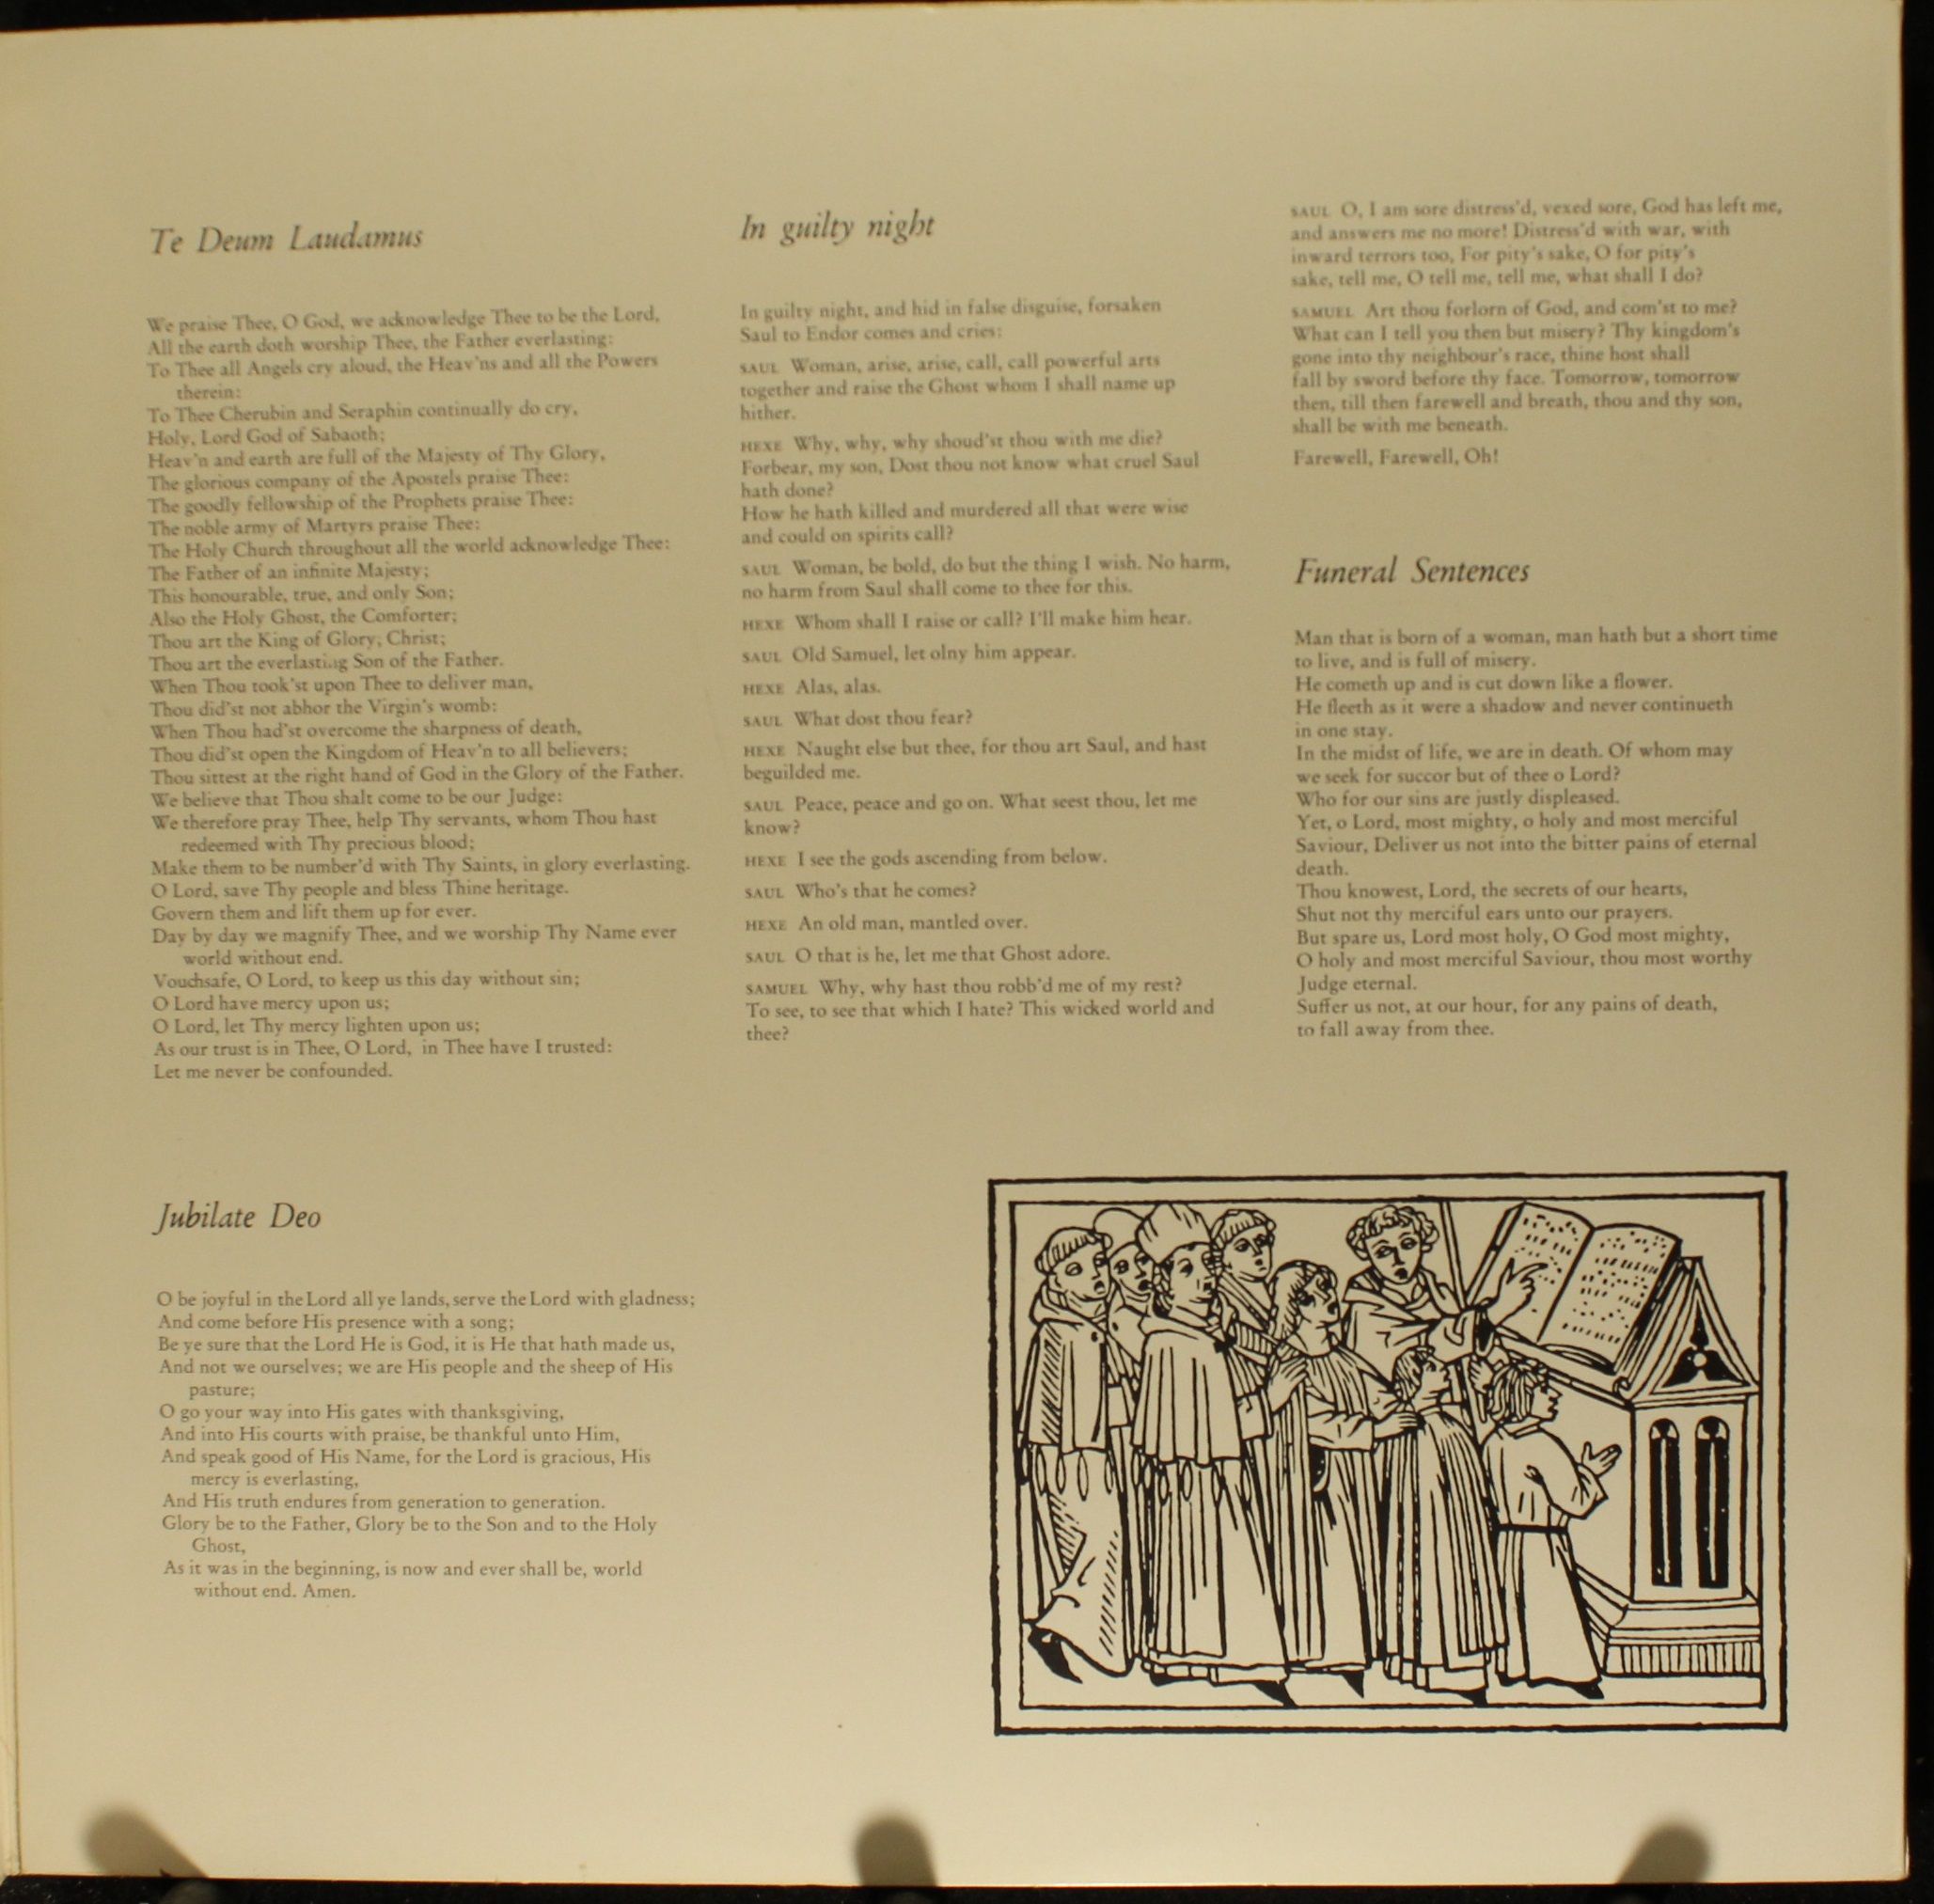 Te Deum Laudamus
We praise Thee, O God, we acknowledge Thee to be the Lord,
All the earth doth worship Thee, the Father everlasting:
To Thee all Angels cry aloud, the Heav'ns and all the Powers
therein:
To Thee Cherubin and Seraphin continually do cry,
Holy, Lord God of Sabaoth;
Heav'n and earth are full of the Majesty of Thy Glory,
The glorious company of the Apostels praise Thee:
The goodly fellowship of the Prophets praise Thee:
The noble army of Martyrs praise Thee:
The Holy Church throughout all the world acknowledge Thee:
The Father of an infinite Majesty;
This honourable, true, and only Son;
Also the Holy Ghost, the Comforter;
Thou art the King of Glory, Christ;
Thou art the everlasting Son of the Father.
When Thou took'st upon Thee to deliver man,
Thou did'st not abhor the Virgin's womb:
When Thou had'st overcome the sharpness of death,
Thou did'st open the Kingdom of Heav'n to all believers;
Thou sittest at the right hand of God in the Glory of the Father.
We believe that Thou shalt come to be our Judge:
We therefore pray Thee, help Thy servants, whom Thou hast
redeemed with Thy precious blood;
Make them to be number'd with Thy Saints, in glory everlasting.
O Lord, save Thy people and bless Thine heritage.
Govern them and lift them up for ever.
Day by day we magnify Thee, and we worship Thy Name ever
world without end.
Vouchsafe, O Lord, to keep us this day without sin;
O Lord have mercy upon us;
O Lord, let Thy mercy lighten upon us;
As our trust is in Thee, O Lord, in Thee have I trusted:
Let me never be confounded.
Jubilate Deo
O be joyful in the Lord all ye lands, serve the Lord with gladness;
And come before His presence with a song;
Be ye sure that the Lord He is God, it is He that hath made us,
And not we ourselves; we are His people and the sheep of His
pasture;
O go your way into His gates with thanksgiving,
And into His courts with praise, be thankful unto Him,
And speak good of His Name, for the Lord is gracious, His
mercy is everlasting,
And His truth endures from generation to generation.
Glory be to the Father, Glory be to the Son and to the Holy
Ghost,
As it was in the beginning, is now and ever shall be, world
without end. Amen.
In guilty night
In guilty night, and hid in false disguise, forsaken
Saul to Endor comes and cries:
SAUL Woman, arise, arise, call, call powerful arts
together and raise the Ghost whom I shall name up
hither.
HEXE Why, why, why shoud'st thou with me die?
Forbear, my son, Dost thou not know what cruel Saul
hath done?
How he hath killed and murdered all that were wise
and could on spirits call?
SAUL Woman, be bold, do but the thing I wish. No harm,
no harm from Saul shall come to thee for this.
HEXE Whom shall I raise or call? I'll make him hear.
SAUL Old Samuel, let olny him appear.
HEXE Alas, alas.
SAUL What dost thou fear?
HEXE Naught else but thee, for thou art Saul, and hast
beguilded me.
SAUL Peace, peace and go on. What seest thou, let me
know?
HEXE I see the gods ascending from below.
SAUL Who's that he comes?
HEXE An old man, mantled over.
SAUL O that is he, let me that Ghost adore.
SAMUEL Why, why hast thou robb'd me of my rest?
To see, to see that which I hate? This wicked world and
thee?
SAUL O, I am sore distress'd, vexed sore, God has left me,
and answers me no more! Distress'd with war, with
inward terrors too, For pity's sake, O for pity's
sake, tell me, O tell me, tell me, what shall I do?
SAMUEL Art thou forlorn of God, and com'st to me?
What can I tell you then but misery? Thy kingdom's
gone into thy neighbour's race, thine host shall
fall by sword before thy face. Tomorrow, tomorrow
then, till then farewell and breath, thou and thy son,
shall be with me beneath.
Farewell, Farewell, Oh!
Funeral Sentences
Man that is born of a woman, man hath but a short time
to live, and is full of misery.
He cometh up and is cut down like a flower.
He fleeth as it were a shadow and never continueth
in one stay.
In the midst of life, we are in death. Of whom may
we seek for succor but of thee o Lord?
Who for our sins are justly displeased.
Yet, o Lord, most mighty, o holy and most merciful
Saviour, Deliver us not into the bitter pains of eternal
death.
Thou knowest, Lord, the secrets of our hearts,
Shut not thy merciful ears unto our prayers.
But spare us, Lord most holy, O God most mighty,
O holy and most merciful Saviour, thou most worthy
Judge eternal.
Suffer us not, at our hour, for any pains of death,
to fall away from thee.